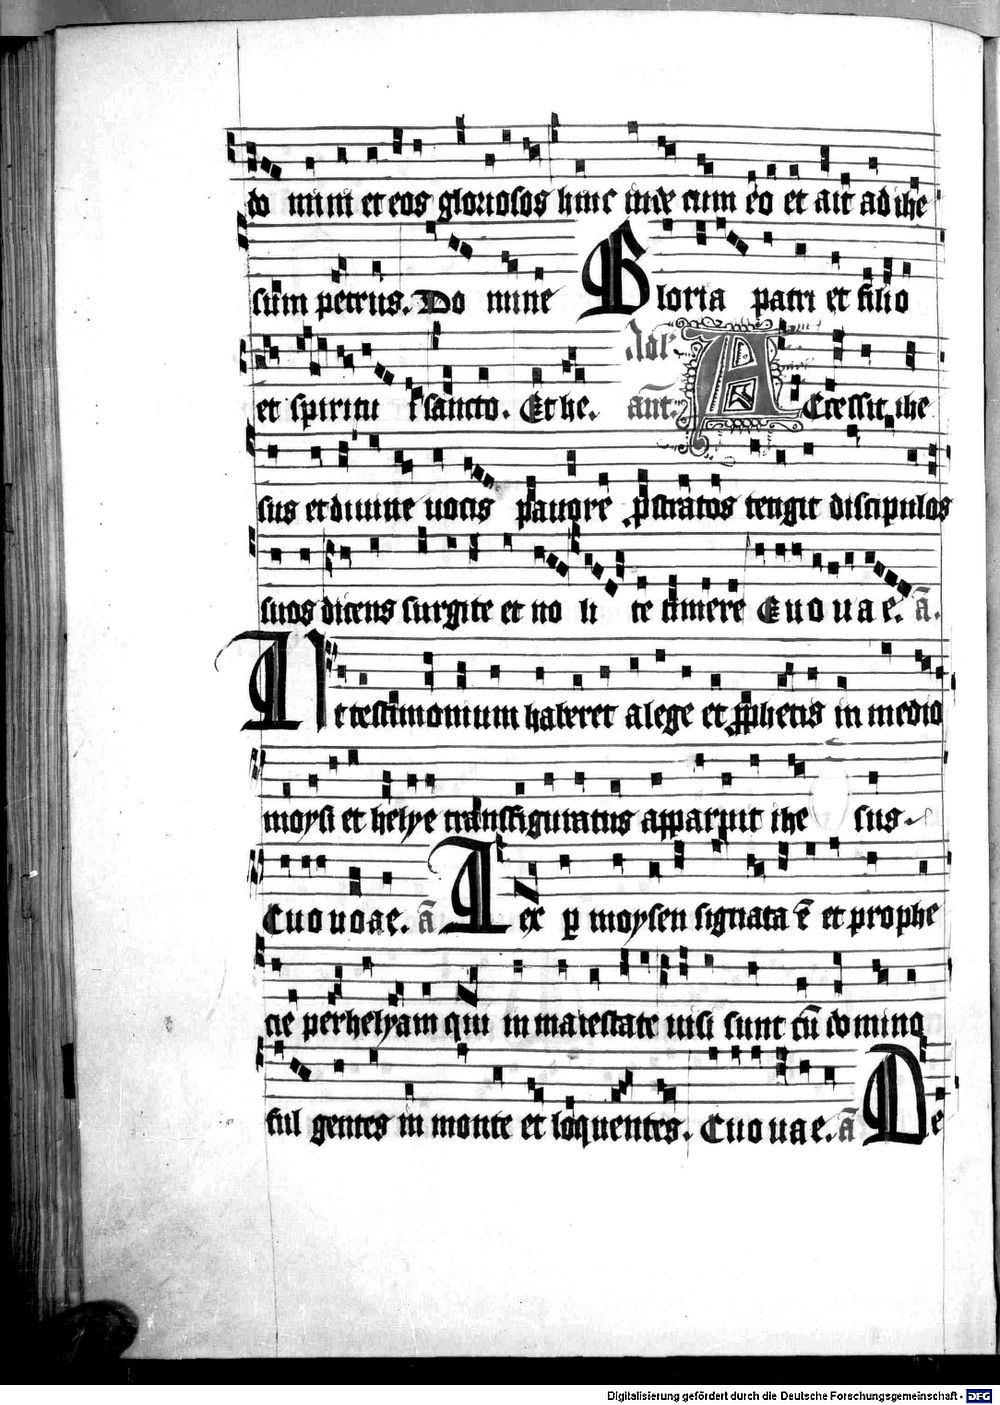 do mini et eos gloriosos hinc inde cum eo et ait ad ihe
sum petrus. Do mine Gloria patri et filio
et spiritu i sancto. Et he. Ad l ant. Accessit ihe
sus et diuine uocis pauore pstratos tengit discipulos
suos dicens surgite et no li te timere Euouae. ā.
Ut testimonium haberet a lege et pphetis in medio
moysi et helye transfiguratus apparuit ihe sus
Euouae. ā Lex p moysen signata ē et prophe
tie per helyam qui in maiestate uisi sunt cū domino
ful gentes in monte et loquentes. Euouae. ā De
Digitalisierung gefördert durch die Deutsche Forschungsgemeinschaft - DFG